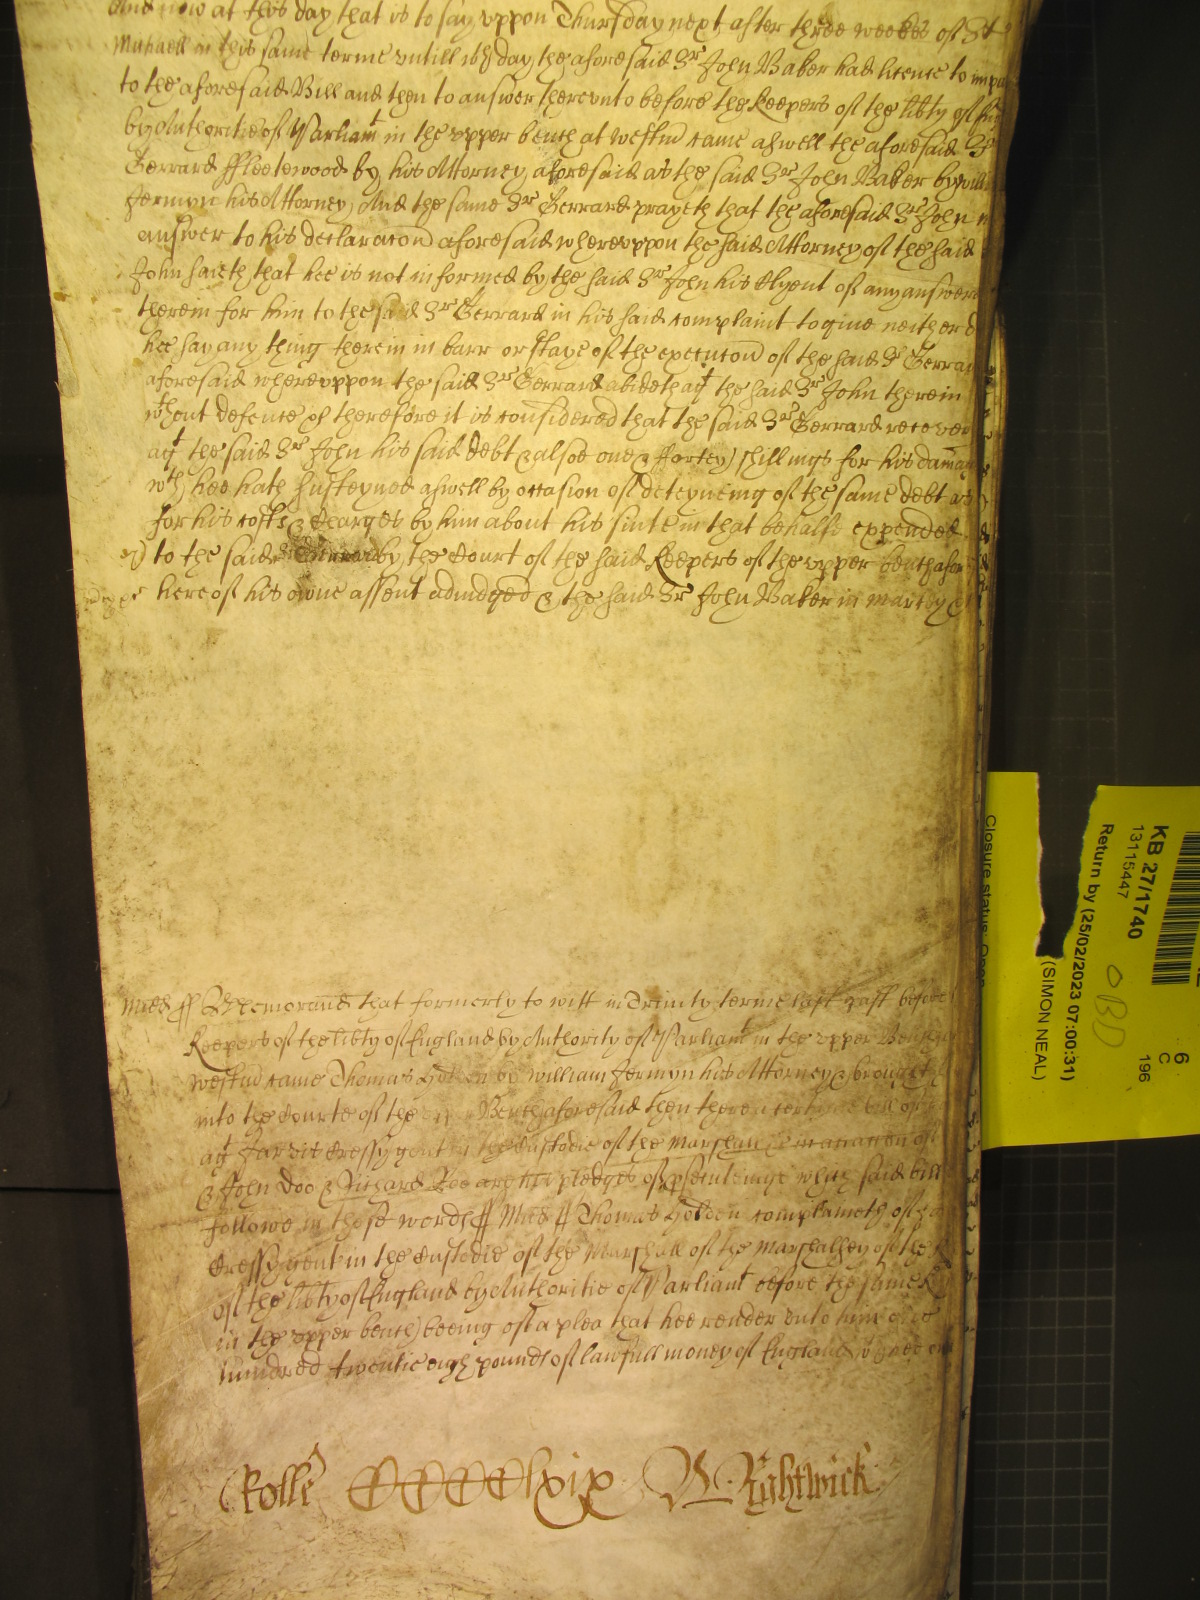 And now at this day that is to say vppon Thursday next after three weekes of St
Michaell in this same terme vntill wch day the aforesaid Sr John Baker had licence to
to the aforesaid Bill and then to answer therevnto before the Keepers of the libty of
by Authoritie of Parliamt in the vpper bench at Westm came aswell the aforesaid Sr
Gerrard Fleetewood by his Attorney aforesaid as the said Sr John Baker by
Jermyn his Attorney And the same Sr Gerrard prayeth that the aforesaid Sr John
answer to his declaracon aforesaid wherevppon the said Attorney of the said
John saieth that hee is not informed by the said Sr John his Clyent of any answere
therein for him to the said Sr Gerrard in his said complaint to giue neither
hee say any thing therein in barr or staye of the execucon of the said Sr
aforesaid wherevppon the said Sr Gerrard abideth agt the said Sr John therein
wthout defence & therefore it is considered that the said Sr Gerrard recover
agt the said Sr John his said debt & alsoe one & fortey shillings for his
wch hee hath susteyned aswell by occasion of deteyneing of the same debt as
for his costs & charges by him about his suite in that behalfe expended
to the said Sr Gerrard by the Court of the said Keepers of the vpper bench
hereof his owne assent adiudged & the said Sr John Baker in
Midd ff Memorand that formerly to witt in Trinity terme last past before
Keepers of the libty of England by Authority of Parliamt in the vpper Bench
Westm came Thomas by William Jermyn his Attorney & brought
into the Courte of the Bench aforesaid then there a certyne bill
agt Cressy gent in the Custodie of the Marshall
& John Doo & Richard Roe are the pledges of psecuteinge which said bill
followe in these words ff Midd ff Thomas Holden complaineth of
Cressy gent in the Custodie of the Marshall of the Marshalsey of the
of the libty of England by Authoritie of Parliamt before the same
in the vpper bench beeing of a plea that hee render vnto him one
hundred twentie eight pounds of lawfull money of England
Rolle CCCClxix Rightwick
KB 27/1740
13115447
Return by (25/02/2023 07:00:31)
(SIMON NEAL)
Closure status: Open
6
C
196